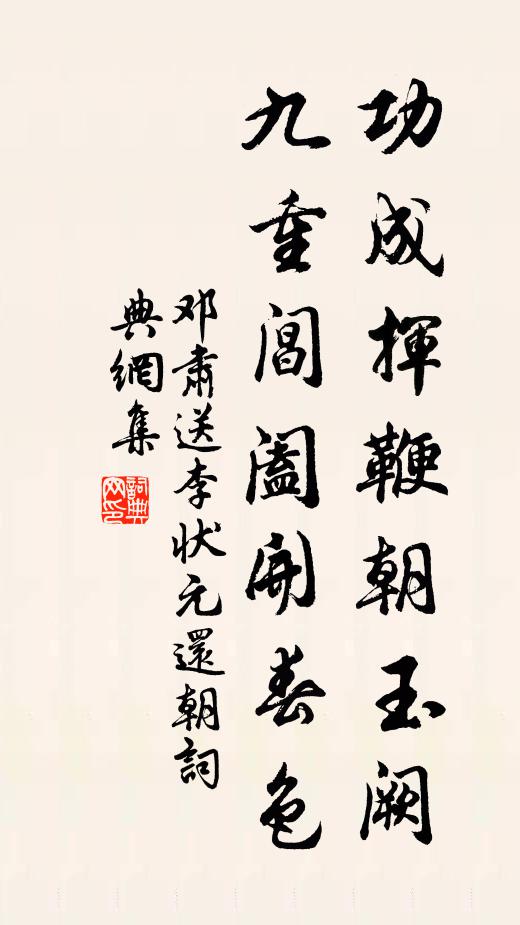 功成揮鞭朝玉阙
九重閶闔開春色
邓肅送李状元還朝詞
典網集
詞典网印